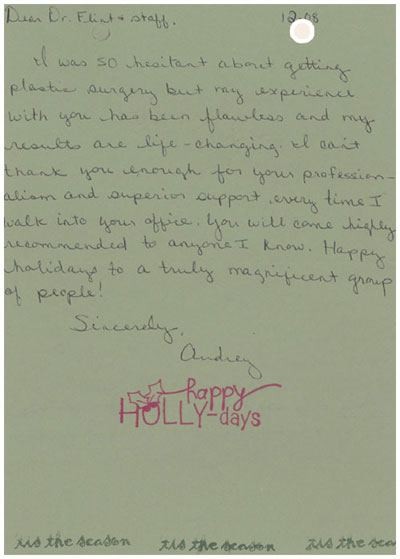 Dear Dr. Flint & staff.
12-08
I was so hesitant about getting
plastic surgery but my experience
with you has been flawless and my
results are life-changing. I can't
thank you enough for your profession-
alism and superior support every time I
walk into your office. You will come highly
recommended to anyone I know. Happy
holidays to a truly magnificent group
of people!
Sincerely,
Audrey
happy
HOLLY-days
tis the season tis the season tis the sea